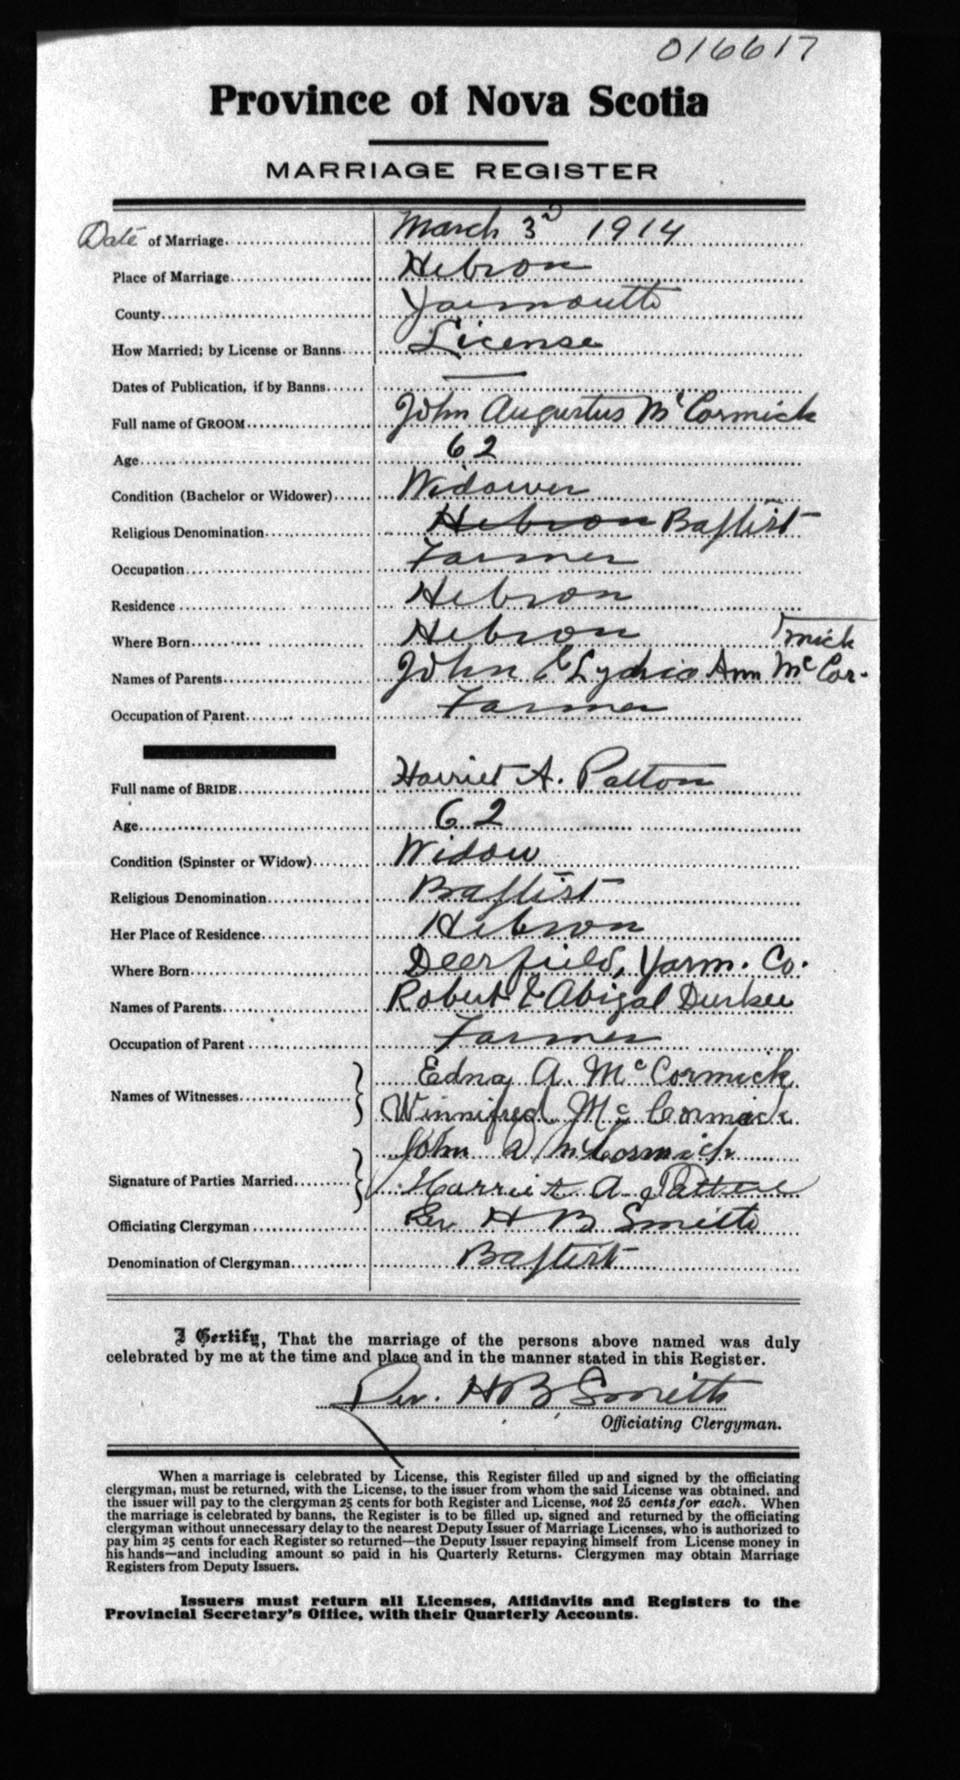 016617
Province of Nova Scotia
MARRIAGE REGISTER
Date of Marriage March 3d 1914
Place of Marriage Hebron
County Yarmouth
How Married; by License or Banns License
Dates of Publication, if by Banns —
Full name of GROOM John Augustus McCormick
Age 62
Condition (Bachelor or Widower) Widower
Religious Denomination Hebron Baptist
Occupation Farmer
Residence Hebron
Where Born Hebron
Names of Parents John & Lydia Ann McCor-mick
Occupation of Parent Farmer
Full name of BRIDE Harriet A. Patton
Age 62
Condition (Spinster or Widow) Widow
Religious Denomination Baptist
Her Place of Residence Hebron
Where Born Deerfield, Yarm. Co.
Names of Parents Robert & Abigal Durkee
Occupation of Parent Farmer
Names of Witnesses Edna A. McCormick
Winnifred McCormick
Signature of Parties Married John A McCormick
Harriet A Patten
Officiating Clergyman Rev H B Smith
Denomination of Clergyman Baptist
I Certify, That the marriage of the persons above named was duly
celebrated by me at the time and place and in the manner stated in this Register.
Rev. H B Smith
Officiating Clergyman.
When a marriage is celebrated by License, this Register filled up and signed by the officiating
clergyman, must be returned, with the License, to the issuer from whom the said License was obtained, and
the issuer will pay to the clergyman 25 cents for both Register and License, not 25 cents for each. When
the marriage is celebrated by banns, the Register is to be filled up, signed and returned by the officiating
clergyman without unnecessary delay to the nearest Deputy Issuer of Marriage Licenses, who is authorized to
pay him 25 cents for each Register so returned—the Deputy Issuer repaying himself from License money in
his hands—and including amount so paid in his Quarterly Returns. Clergymen may obtain Marriage
Registers from Deputy Issuers.
Issuers must return all Licenses, Affidavits and Registers to the
Provincial Secretary's Office, with their Quarterly Accounts.